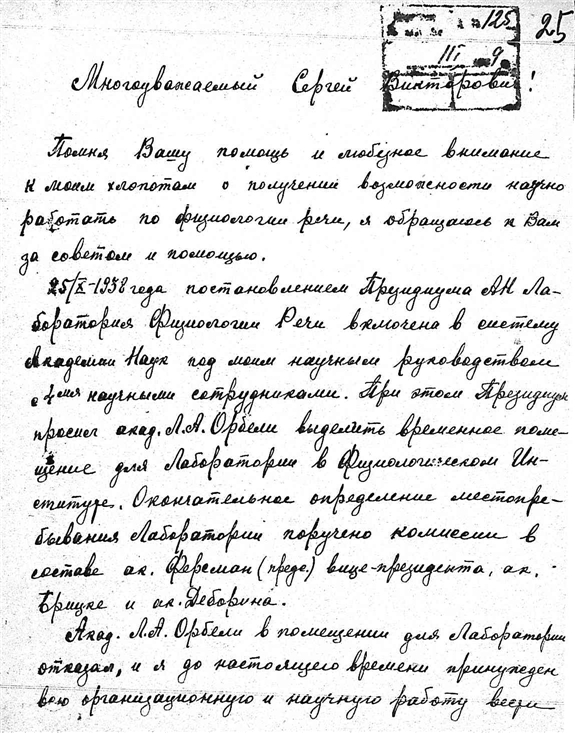 125 25
III 9
Многоуважаемый Сергей Викторович!
Помня Вашу помощь и любезное внимание
к моим хлопотам о получении возможности научно
работать по физиологии речи, я обращаюсь к Вам
за советом и помощью.
25/X-1938 года постановлением Президиума АН Ла-
боратория Физиологии Речи включена в систему
Академии Наук под моим научным руководством
с 4мя научными сотрудниками. При этом Президиум
просил акад. Л.А. Орбели выделить временное поме-
щение для Лаборатории в Физиологическом Ин-
ституте. Окончательное определение местопре-
бывания Лаборатории поручено комиссии в
составе ак. Ферсман (пред.) вице-президента, ак.
Брицке и ак. Деборина.
Акад. Л.А. Орбели в помещении для Лаборатории
отказал, и я до настоящего времени принужден
всю организационную и научную работу вести